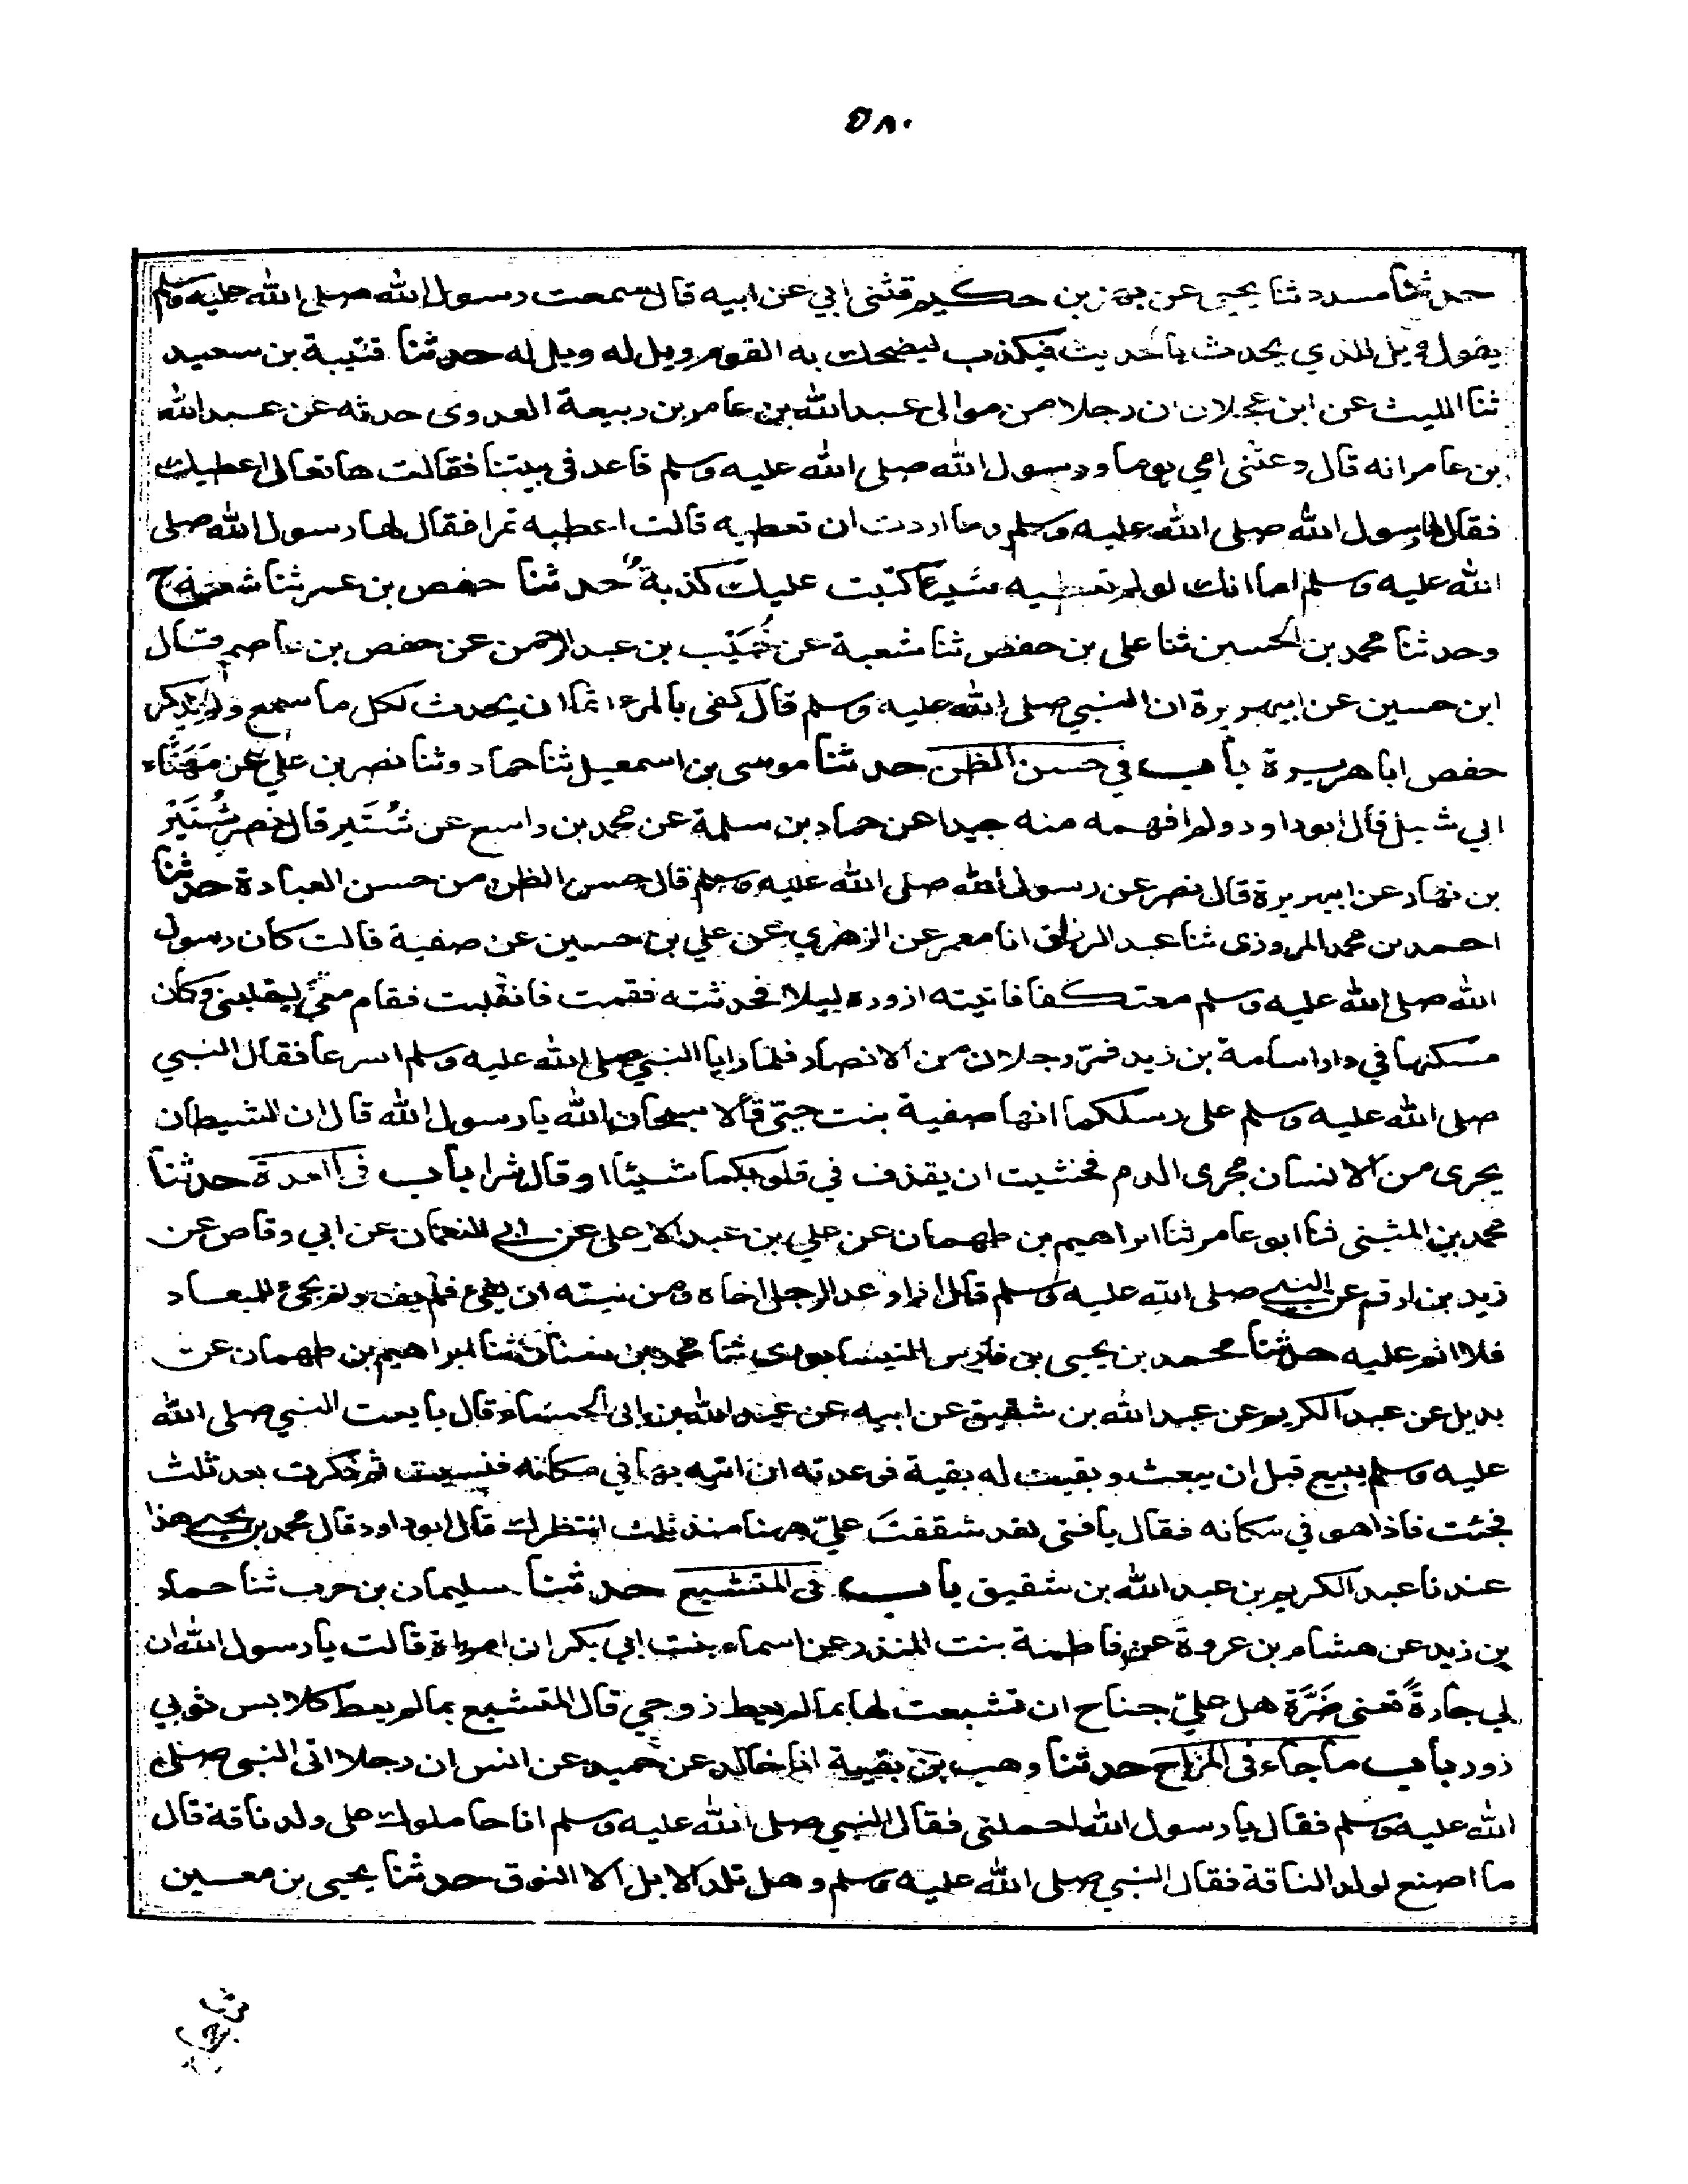 ٥٨٠
حدثنا مسدد ثنا يحيى عن بهز بن حكيم قثنى ابي عن ابيه قال سمعت رسول الله صلى الله عليه وسلم
يقول ويل للذي يحدث بالحديث فيكذب ليضحك به القوم ويل له ويل له حدثنا قتيبة بن سعيد
ثنا الليث عن ابن عجلان ان رجلا من موالي عبد الله بن عامر بن ربيعة العدوى حدثه عن عبد الله
بن عامر انه قال دعتنى امي يوما ورسول الله صلى الله عليه وسلم قاعد في بيتنا فقالت ها تعالى اعطيك
فقال لها رسول الله صلى الله عليه وسلم وما اردت ان تعطيه قالت اعطيه تمرا فقال لها رسول الله صلى
الله عليه وسلم اما انك لو لم تعطيه شيئا كتبت عليك كذبة حدثنا حفص بن عمر ثنا شعبة ح
وحدثنا محمد بن الحسين ثنا على بن حفص ثنا شعبة عن خُبَيْب بن عبد الرحمن عن حفص بن عاصم قال
ابن حسين عن ابيهريرة ان النبي صلى الله عليه وسلم قال كفى بالمرء اثما ان يحدث لكل ما سمع ولم يذكر
حفص ابا هريرة باب في حسن الظن حدثنا موسى بن اسمعيل ثنا حماد وثنا نصر بن علي عن مَهَنَّاء
ابي شبل قال ابو داود ولم افهمه منه جيدا عن حماد بن سلمة عن محمد بن واسع عن شُتَير قال نصر شُتَيْر
بن نهار عن ابيهريرة قال نصر عن رسول الله صلى الله عليه وسلم قال حسن الظن من حسن العبادة حدثنا
احمد بن محمد المروزى ثنا عبد الرزاق انا معمر عن الزهري عن علي بن حسين عن صفية قالت كان رسول
الله صلى الله عليه وسلم معتكفا فاتيته ازوره ليلا فحدثته فقمت فانقلبت فقام معي ليقلبنى وكان
مسكنها في دار اسامة بن زيد فمرّ رجلان من الانصار فلما رايا النبي صلى الله عليه وسلم اسرعا فقال النبي
صلى الله عليه وسلم على رسلكما انها صفية بنت حيىّ قالا سبحان الله يا رسول الله قال ان الشيطان
يجرى من الانسان مجرى الدم فخشيت ان يقذف في قلوبكما شيئا او قال شرا باب فى العدة حدثنا
محمد بن المثنى ثنا ابو عامر ثنا ابراهيم بن طهمان عن علي بن عبد الاعلى عن ابي النعمان عن ابي وقاص عن
زيد بن ارقم عن النبي صلى الله عليه وسلم قال اذا وعد الرجل اخاه ومن نيته ان يفيء فلم يف ولم يجئ للميعاد
فلا اثم عليه حدثنا محمد بن يحيى بن فارس النيسابورى ثنا محمد بن سنان ثنا ابراهيم بن طهمان عن
بديل عن عبد الكريم عن عبد الله بن شقيق عن ابيه عن عبد الله بن ابى الحمساء قال بايعت النبي صلى الله
عليه وسلم ببيع قبل ان يبعث وبقيت له بقية فى عدته ان اتيه بها في مكانه فنسيت ثم ذكرت بعد ثلث
فجئت فاذا هو في مكانه فقال يا فتى لقد شققت عليّ ههنا منذ ثلث انتظرك قال ابو داود قال محمد بن يحيى هذا
عندنا عبد الكريم بن عبد الله بن شقيق باب فى المتشبع حدثنا سليمان بن حرب ثنا حماد
بن زيد عن هشام بن عروة عن فاطمة بنت المنذر عن اسماء بنت ابي بكر ان امراة قالت يا رسول الله ان
لي جارةً تعنى ضَرَّة هل عليّ جناح ان تشبعت لها بما لم يعط زوجي قال المتشبع بما لم يعط كلابس ثوبي
زور باب ما جاء فى المزاح حدثنا وهب بن بقية انا خالد عن حميد عن انس ان رجلا اتى النبي صلى
الله عليه وسلم فقال يا رسول الله احملنى فقال النبي صلى الله عليه وسلم انا حاملوك على ولد ناقة قال
ما اصنع لولد الناقة فقال النبي صلى الله عليه وسلم وهل تلد الابل الا النوق حدثنا يحيى بن معين